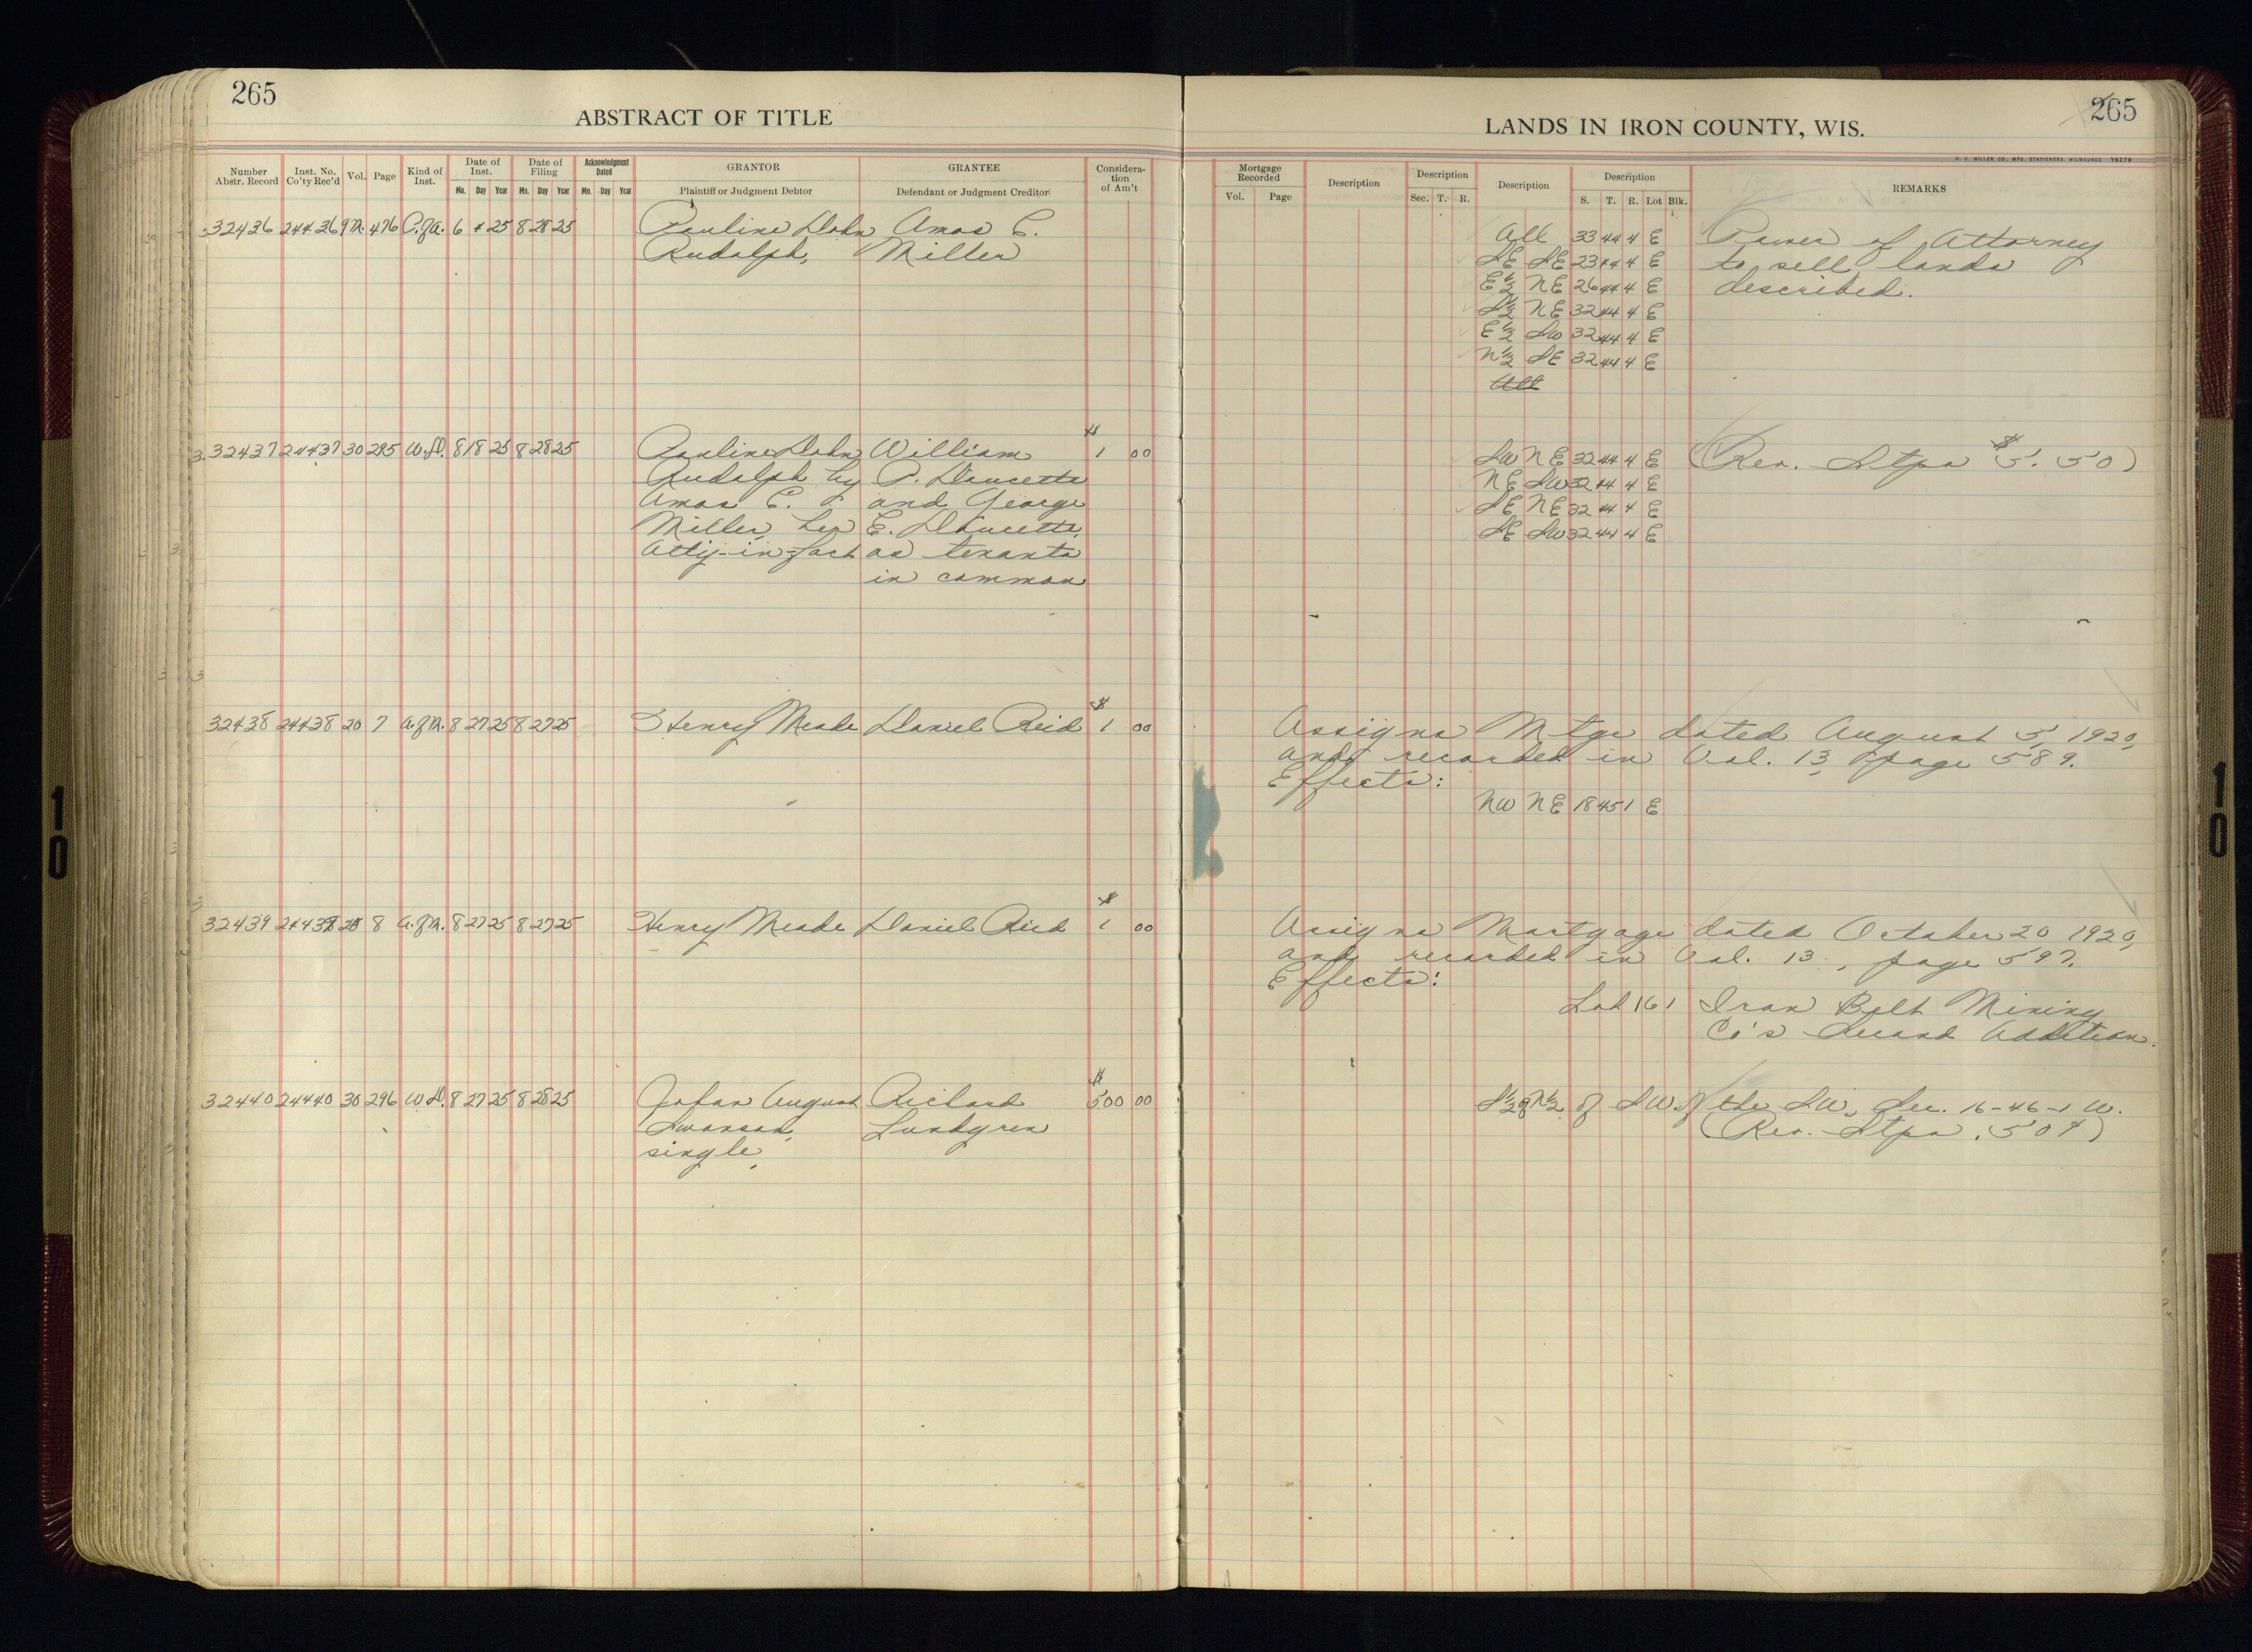 265
ABSTRACT OF TITLE
Number Abstr. Record
Inst. No. Co'ty Rec'd
Vol.
Page
Kind of Inst.
Date of Inst.
Mo. Day Year
Date of Filing
Mo. Day Year
Acknowledgment Dated
Mo. Day Year
GRANTOR
Plaintiff or Judgment Debtor
GRANTEE
Defendant or Judgment Creditor
Considera-tion of Am't
32436 24436 9M. 476 P.of A. 6 4 25 8 28 25 Pauline Dohn Amos C.
Rudolph, Miller
32437 24437 30 295 W.D. 8 18 25 8 28 25 Pauline Dohn William $1 00
Rudolph by P. Doucette
Amos C. and George
Miller, her E. Doucette,
Atty-in-fact as tenants
in common
32438 24438 20 7 A.of M. 8 27 25 8 27 25 Henry Meade Daniel Reid $1 00
32439 20 8 A.of M. 8 27 25 8 27 25 Henry Meade Daniel Reid $1 00
32440 24440 30 296 W.D. 8 27 25 8 28 25 Johan August Richard $500 00
Swanson, Lundgren
single,
265
LANDS IN IRON COUNTY, WIS.
H. C. MILLER CO. MFG. STATIONERS MILWAUKEE Y6279
Mortgage Recorded
Vol. Page
Description
Description
Sec. T. R.
Description
Description
S. T. R. Lot Blk.
REMARKS
All 33 44 4 E Power of Attorney
SE SE 23 44 4 E to sell lands
E½ NE 26 44 4 E described.
S½ NE 32 44 4 E
E½ SW 32 44 4 E
N½ SE 32 44 4 E
All
SW NE 32 44 4 E (Rev. Stps $5.50)
NE SW 32 44 4 E
SE NE 32 44 4 E
SE SW 32 44 4 E
Assigns Mtge dated August 5, 1920,
and recorded in Vol. 13, page 589.
Effects:
NW NE 18 45 1 E
Assigns Mortgage dated October 20 1920,
and recorded in Vol. 13, page 597.
Effects:
Lot 161 Iron Belt Mining
Co's Second Addition.
S½ of N½ of SW of the SW, Sec. 16-46-1 W.
(Rev. Stps .50¢)
10
10